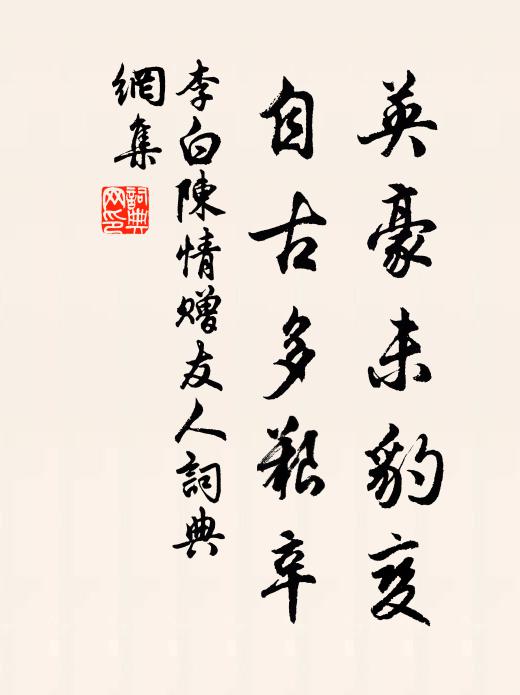 英豪未豹变
自古多艱辛
李白陳情赠友人詞典
網集
詞典
网印